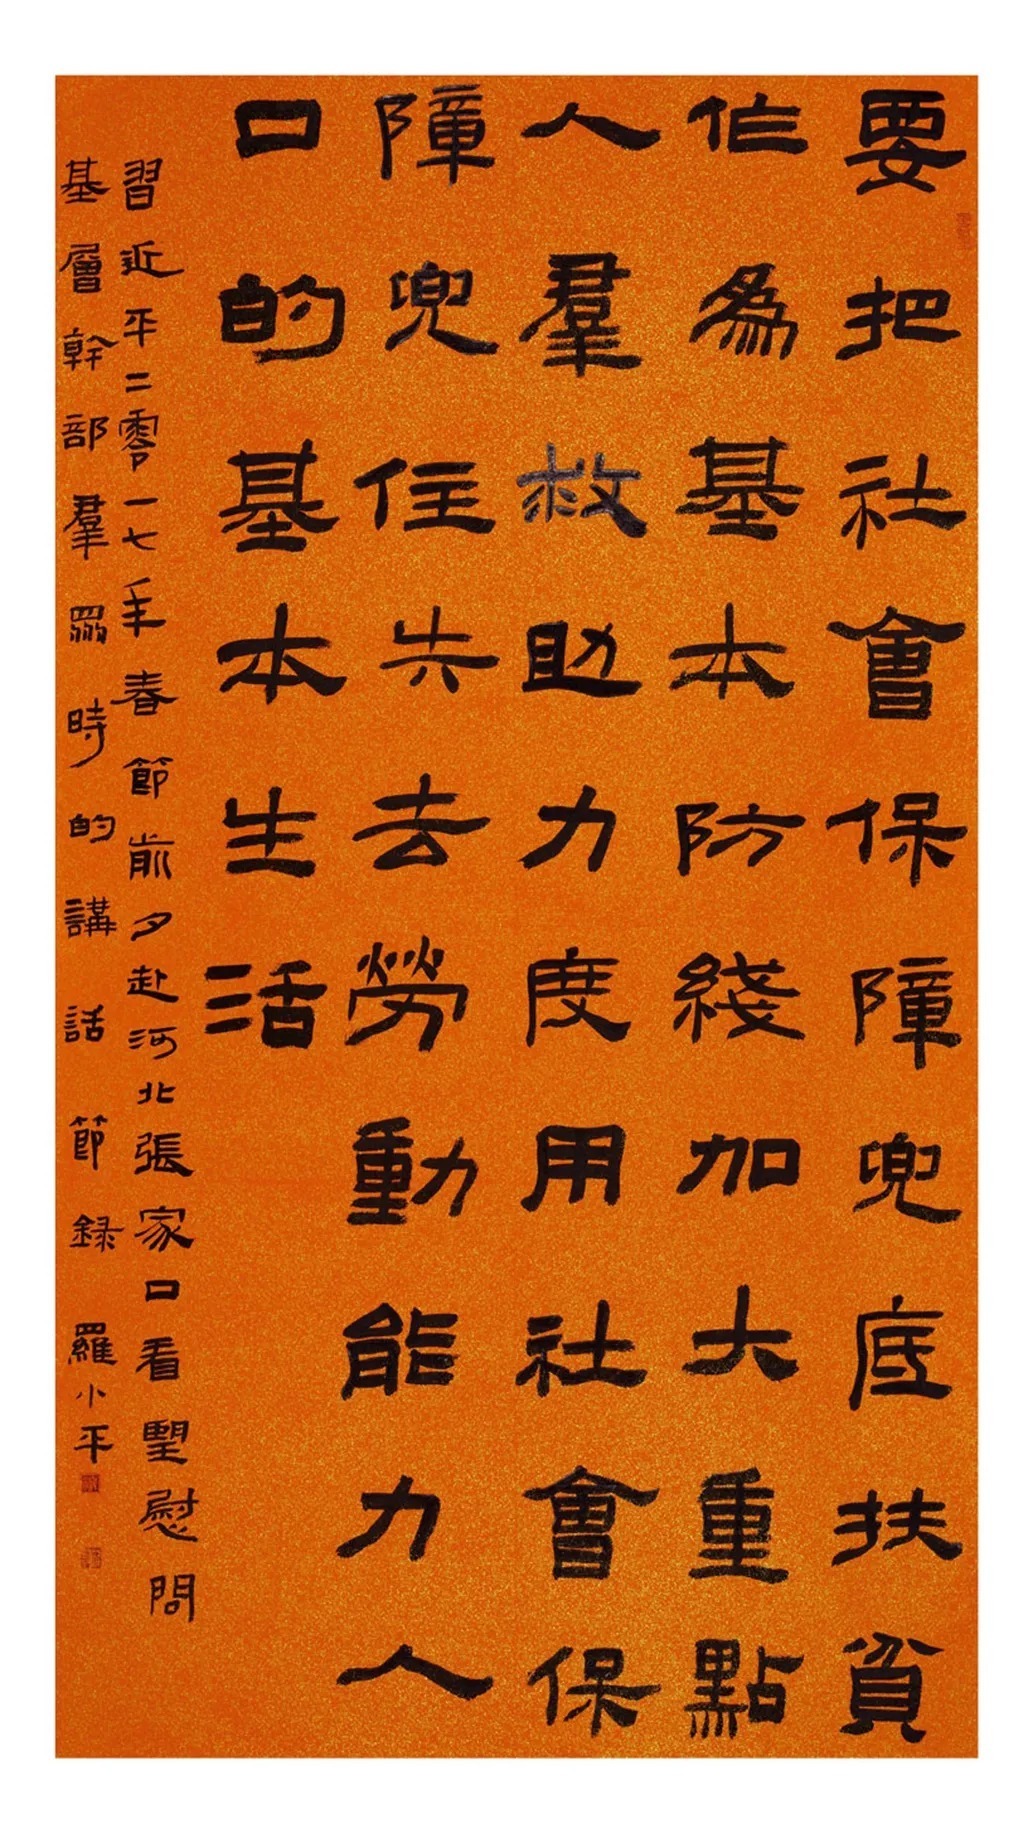 要把社會保障兜底扶貧
作為基本防綫加大重點
人羣救助力度用社會保
障兜住失去勞動能力人
口的基本生活
習近平二零一七年春節前夕赴河北張家口看朢慰問
基層幹部羣眾時的講話節録 羅小平